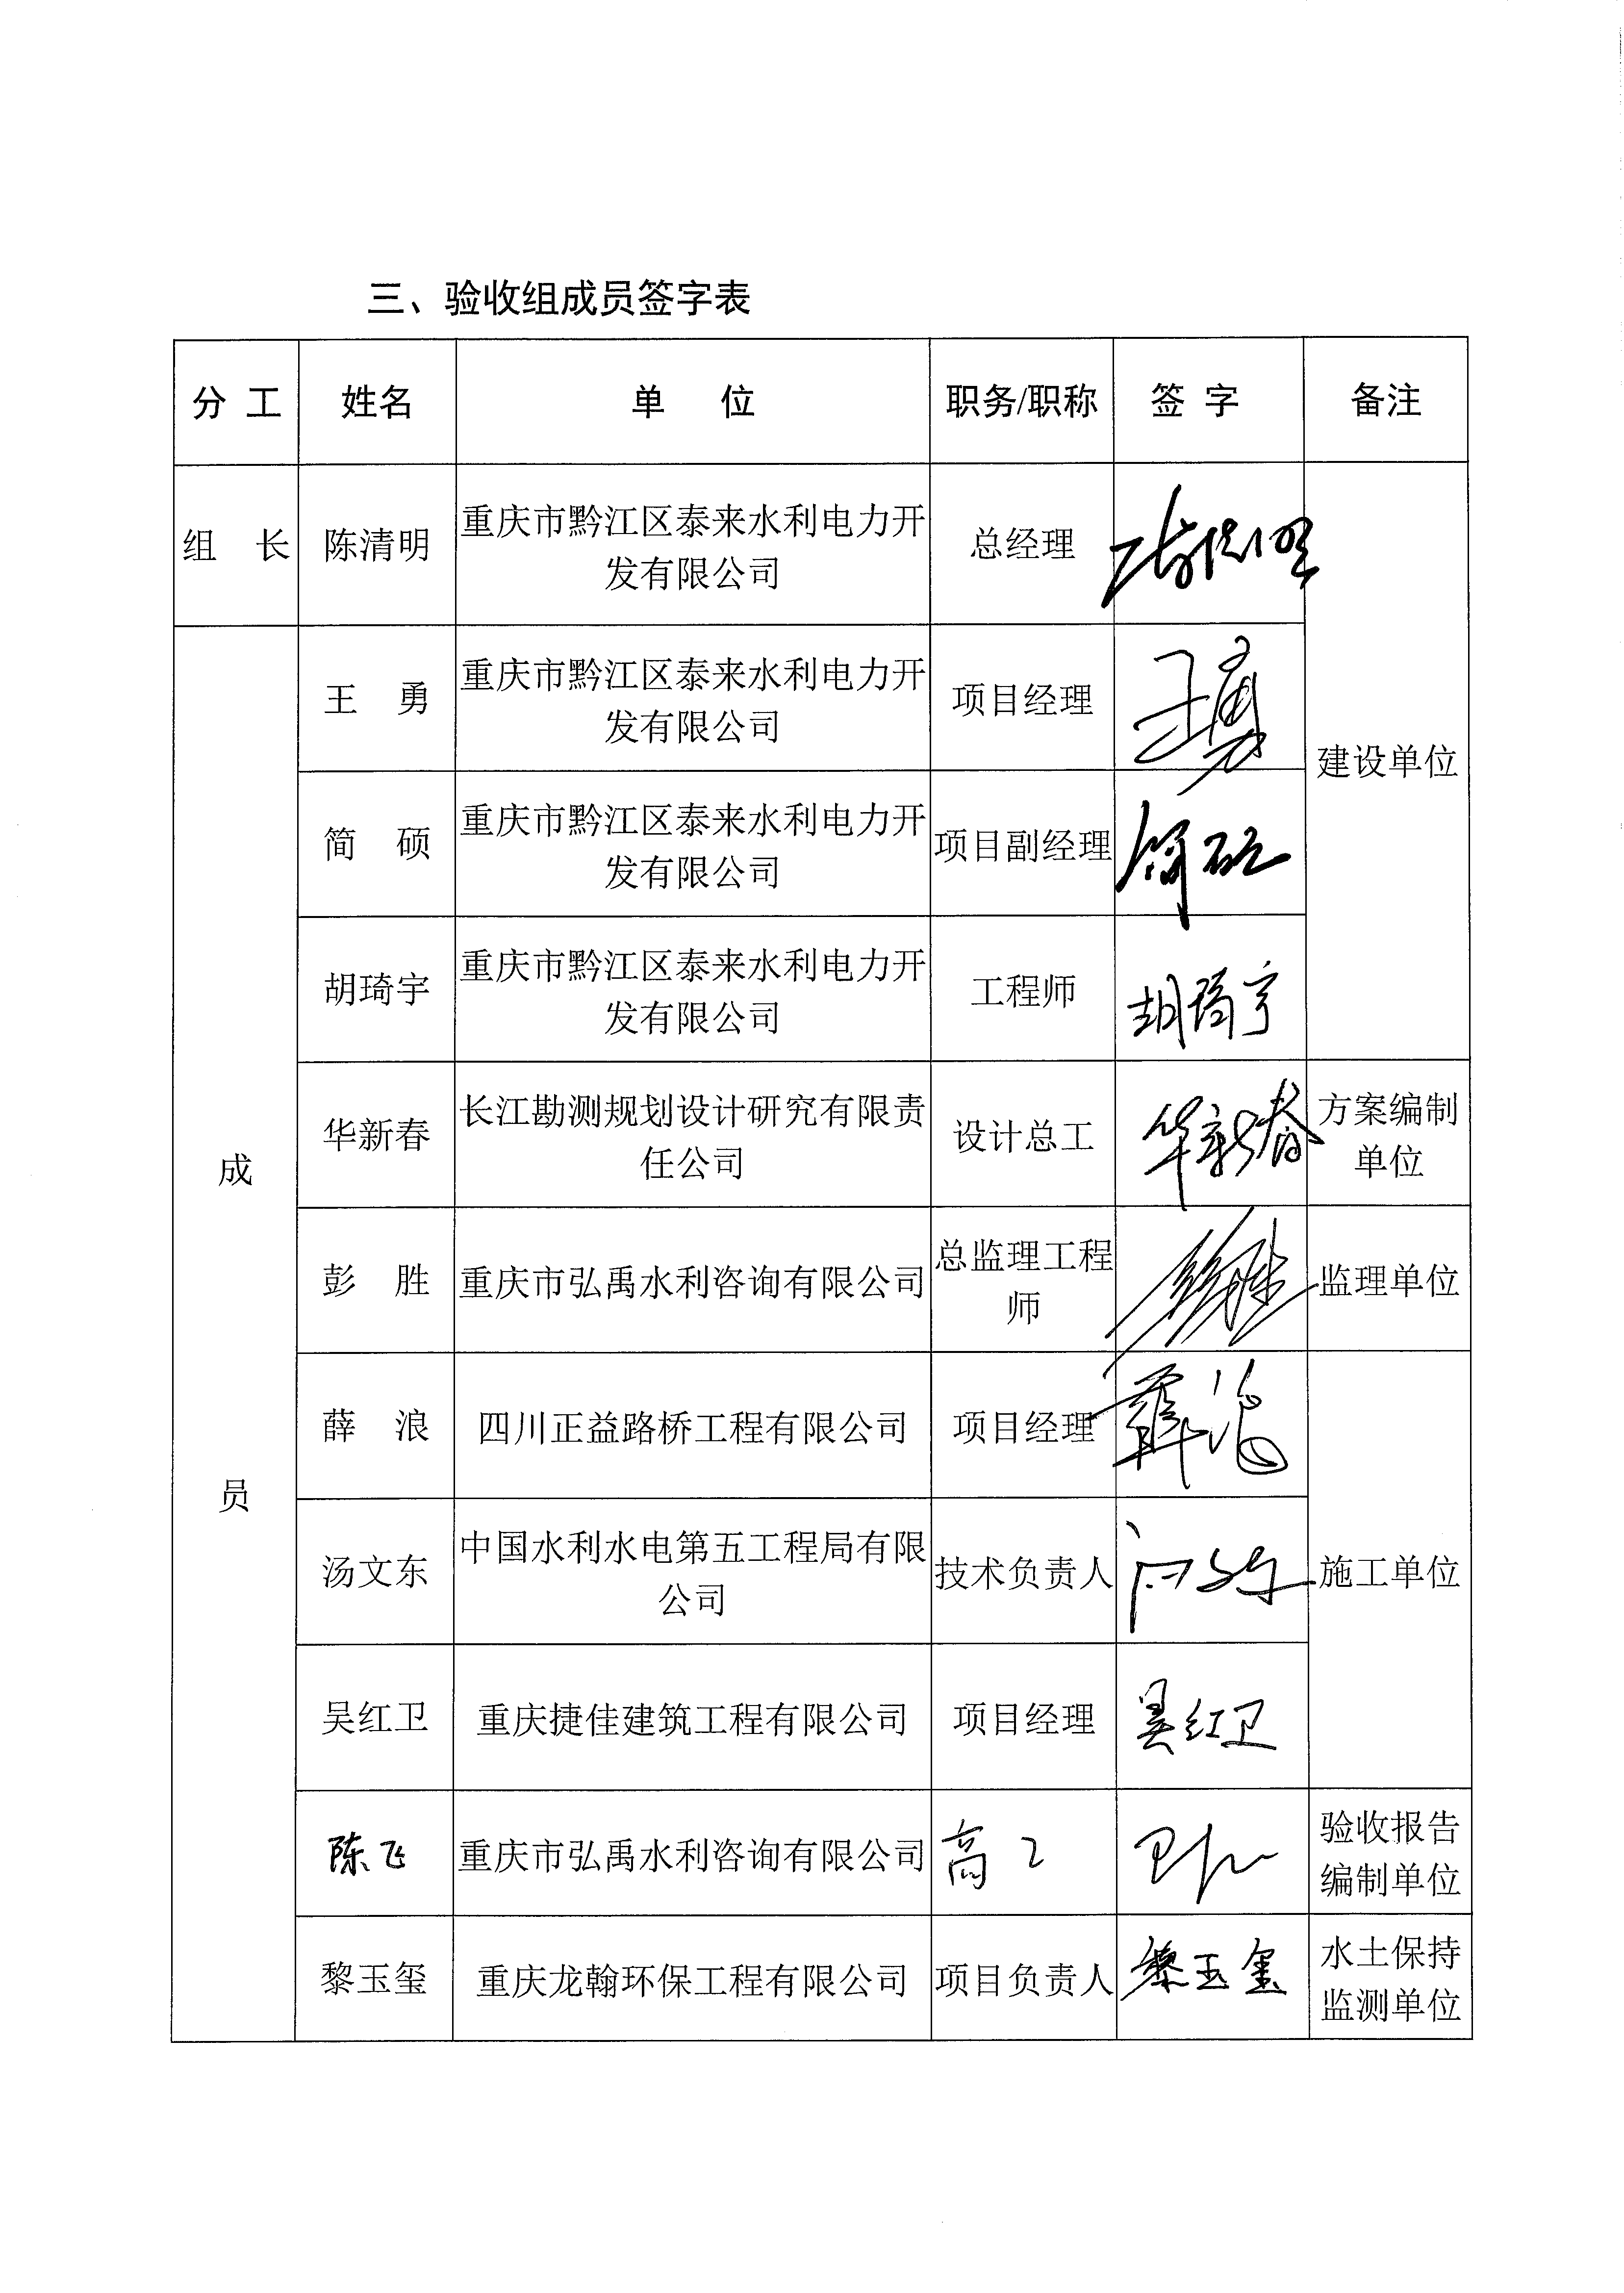 三、验收组成员签字表
分 工 姓名 单 位 职务/职称 签 字 备注
组 长 陈清明 重庆市黔江区泰来水利电力开
发有限公司 总经理 陈清明
成
员
王 勇 重庆市黔江区泰来水利电力开
发有限公司 项目经理 王勇
建设单位
简 硕 重庆市黔江区泰来水利电力开
发有限公司 项目副经理 简硕
胡琦宇 重庆市黔江区泰来水利电力开
发有限公司 工程师 胡琦宇
华新春 长江勘测规划设计研究有限责
任公司 设计总工 华新春 方案编制
单位
彭 胜 重庆市弘禹水利咨询有限公司 总监理工程
师 彭胜 监理单位
薛 浪 四川正益路桥工程有限公司 项目经理 薛浪
汤文东 中国水利水电第五工程局有限
公司 技术负责人 施工单位
吴红卫 重庆捷佳建筑工程有限公司 项目经理 吴红卫
陈飞 重庆市弘禹水利咨询有限公司 高工 验收报告
编制单位
黎玉玺 重庆龙翰环保工程有限公司 项目负责人 黎玉玺 水土保持
监测单位